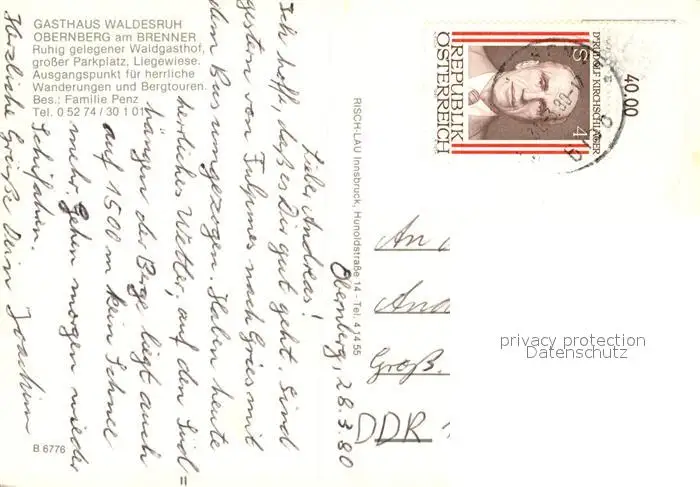 GASTHAUS WALDESRUH
OBERNBERG am BRENNER
Ruhig gelegener Waldgasthof,
großer Parkplatz, Liegewiese.
Ausgangspunkt für herrliche
Wanderungen und Bergtouren.
Bes.: Familie Penz
Tel. 0 52 74 / 30 1 01
Obernberg, 28.3.80
Liebe Andreas!
Ich hoffe, daß es Dir gut geht. Sind
gestern von Fulpmes nach Gries mit
dem Bus umgezogen. Haben heute
herrliches Wetter, auf den Süd=
hängen der Berge liegt auch
auf 1500 m kein Schnee
mehr. Gehen morgen wieder
Schifahren.
Herzliche Grüße Dein Joachim
B 6776
RISCH-LAU Innsbruck, Hunoldstraße 14 - Tel. 41455
REPUBLIK
ÖSTERREICH
DR RUDOLF KIRCHSCHLÄGER
S 4
40,00
An
And
Groß.
DDR
privacy protection
Datenschutz